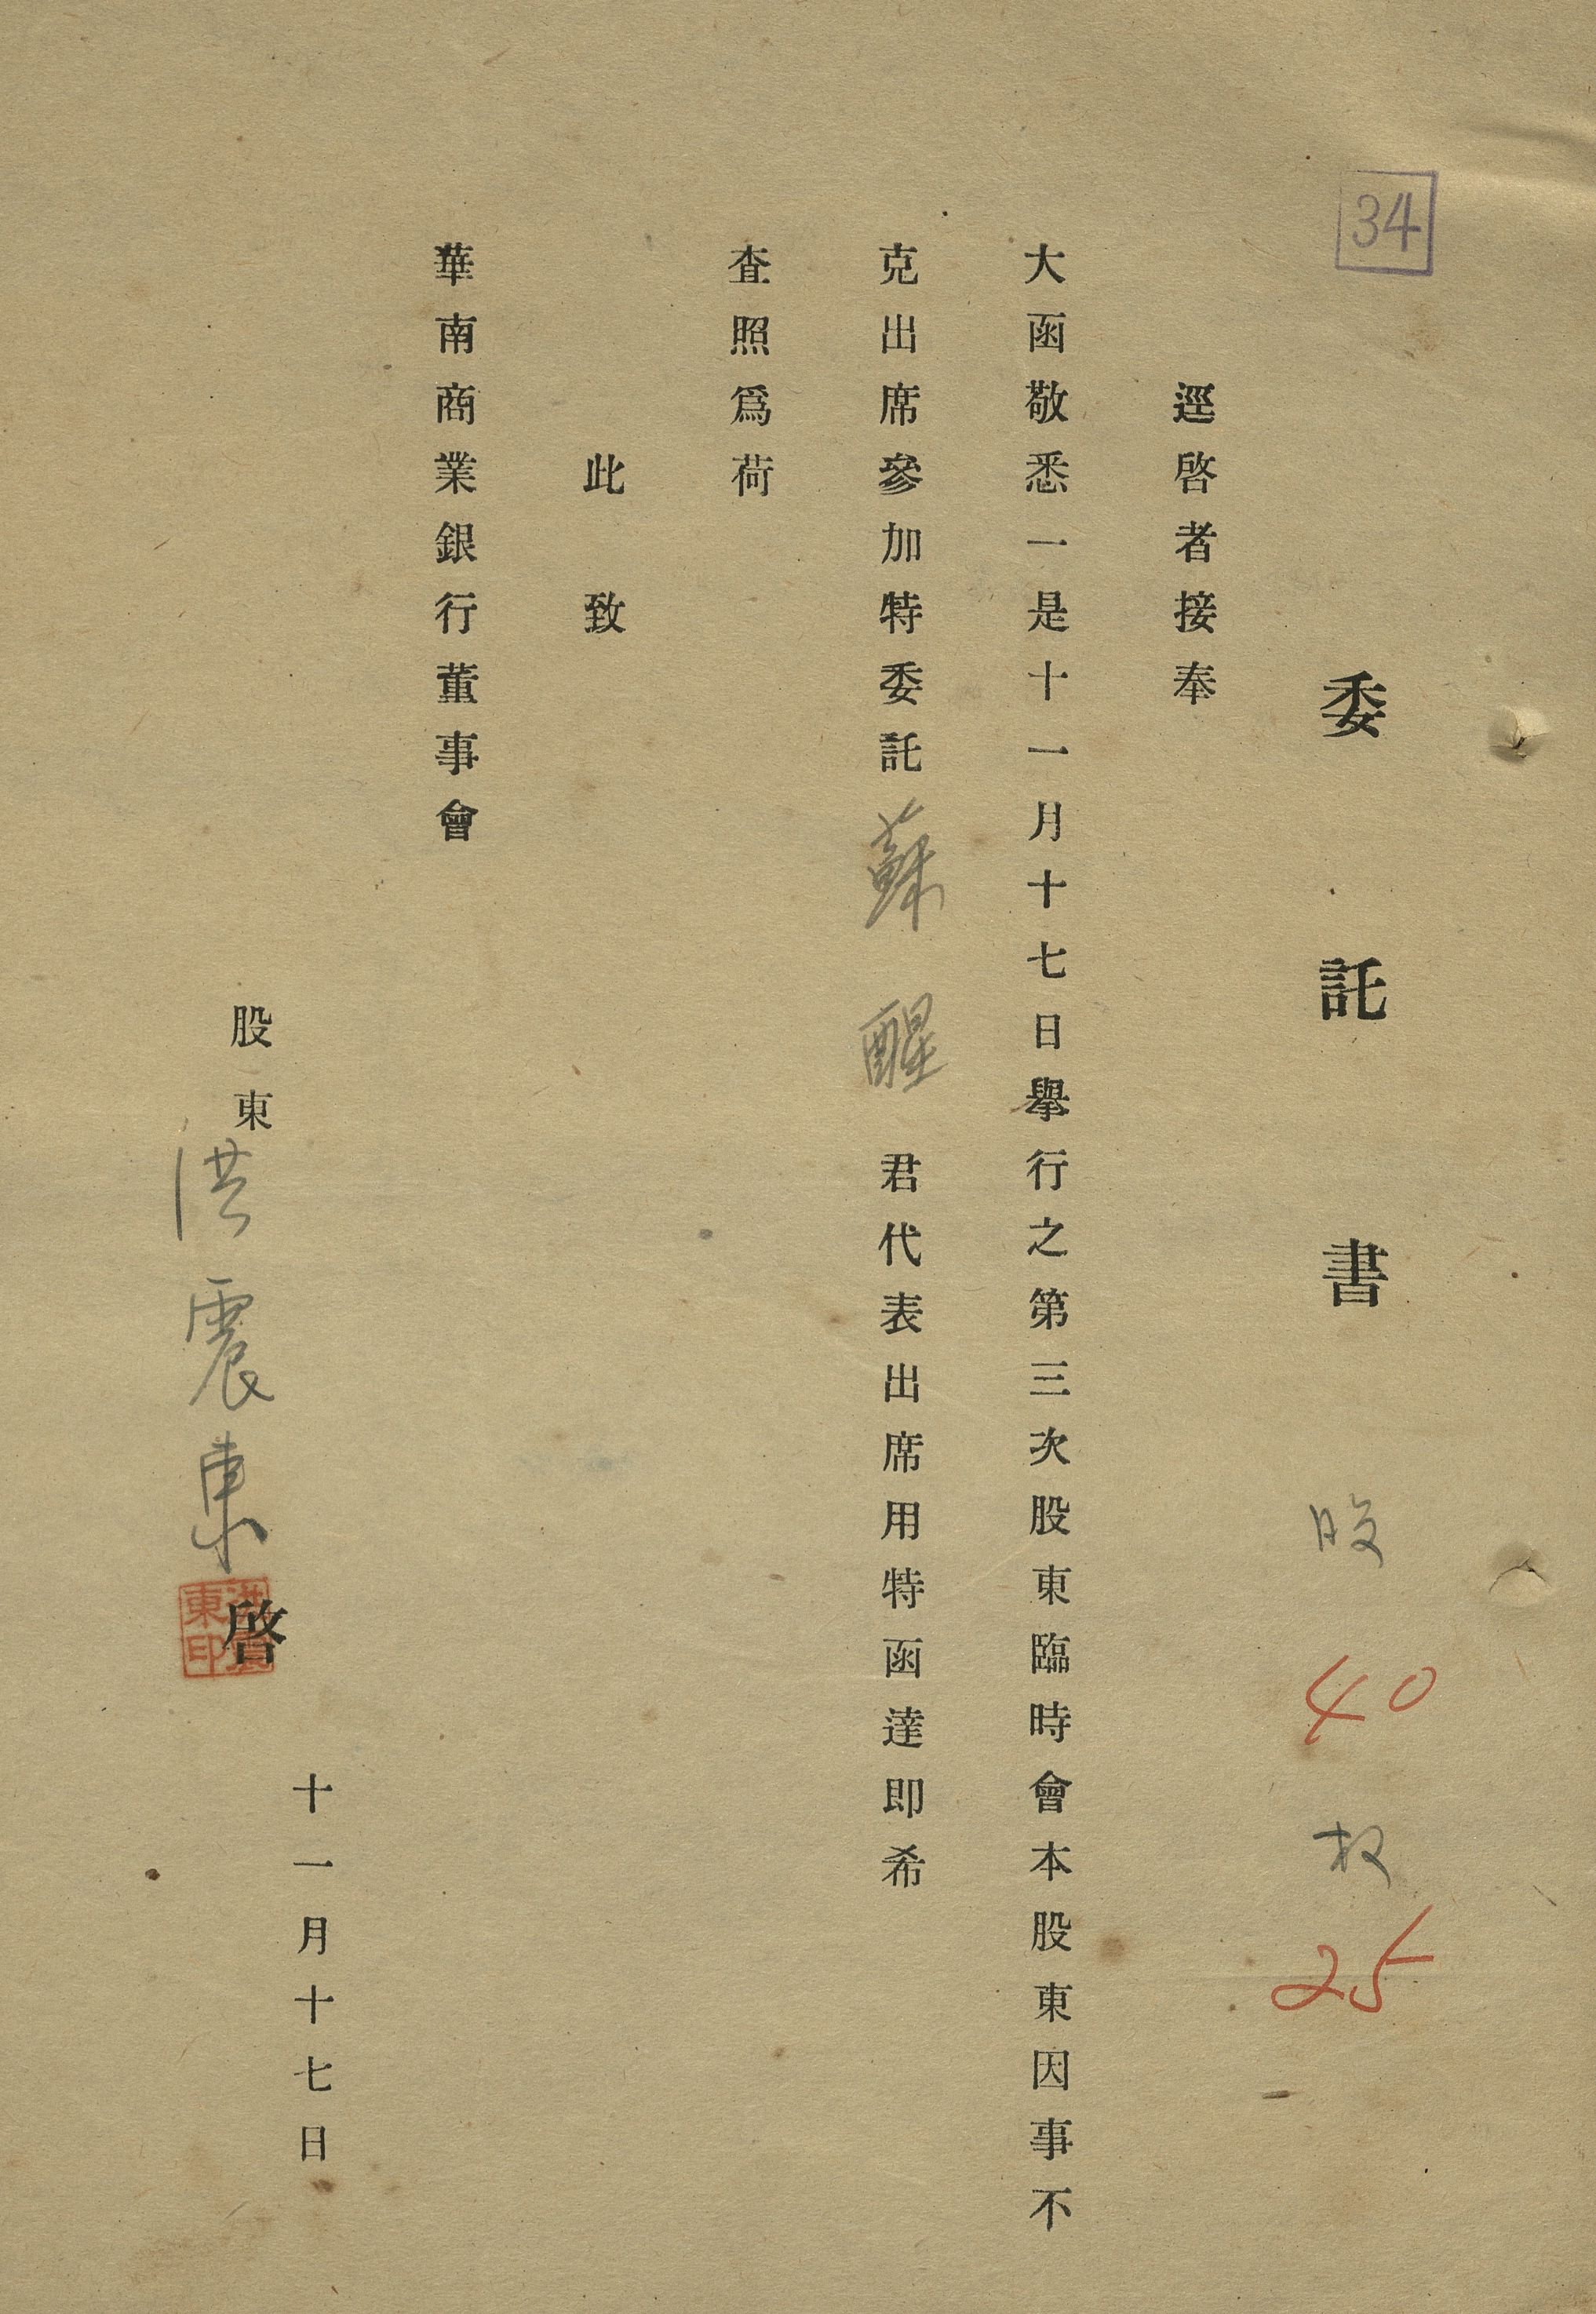 34
委託書
股 40 权 25
逕啓者接奉
大函敬悉一是十一月十七日舉行之第三次股東臨時會本股東因事不
克出席參加特委託蘇醒君代表出席用特函達即希
查照爲荷
此致
華南商業銀行董事會
十一月十七日
股東洪震東啓
洪震東印